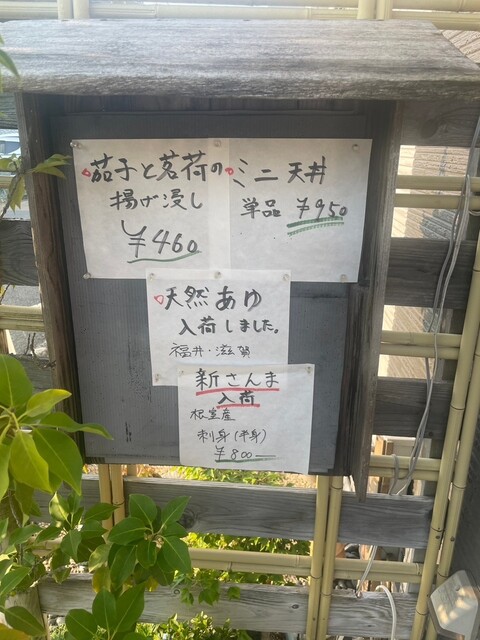 茄子と茗荷の
揚げ浸し
￥460
ミニ天丼
単品 ￥950
天然あゆ
入荷しました。
福井・滋賀
新さんま
入荷
根室産
刺身(半身)
￥800ー